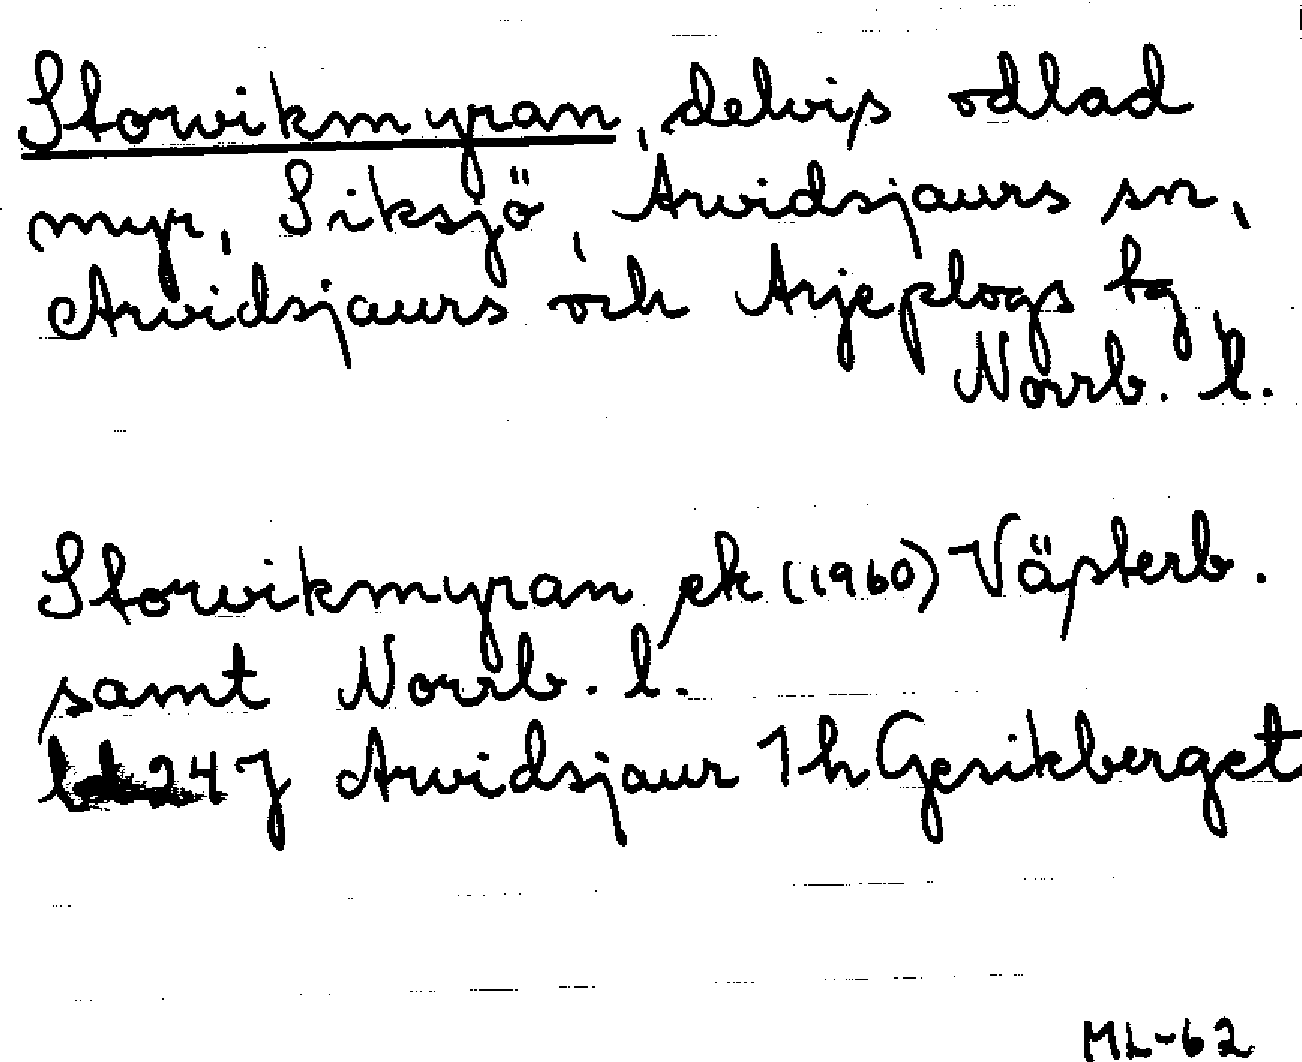 Storvikmyran, delvis odlad
myr, Siksjö, Arvidsjaurs sn,
Arvidsjaurs och Arjeplogs tg,
Norrb. l.
Storvikmyran ek (1960) Västerb.
samt Norrb. l.
24J Arvidsjaur 1h Gesikberget
ML-62